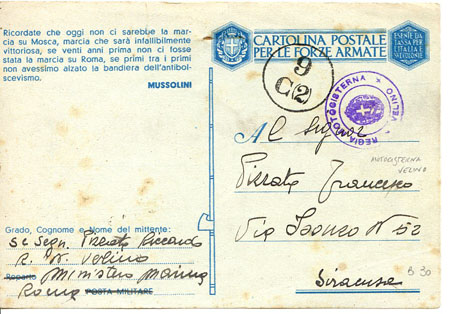 Ricordate che oggi non ci sarebbe la mar-
cia su Mosca, marcia che sarà infallibilmente
vittoriosa, se venti anni prima non ci fosse
stata la marcia su Roma, se primi tra i primi
non avessimo alzato la bandiera dell'antibol-
scevismo.
MUSSOLINI
CARTOLINA POSTALE
PER LE FORZE ARMATE
ESENTE DA
TASSA PER
L'ITALIA E
9
G(2)
VELINO
Al Signor
MOTOCISTERNA
VELINO
Pizzato Francesco
Via Isonzo N 52
Siracusa
B 30
Grado, Cognome e Nome del mittente:
Sc Segn. Pizzato Riccardo
R. N. Velino
Reparto Ministero Marina
Roma POSTA MILITARE